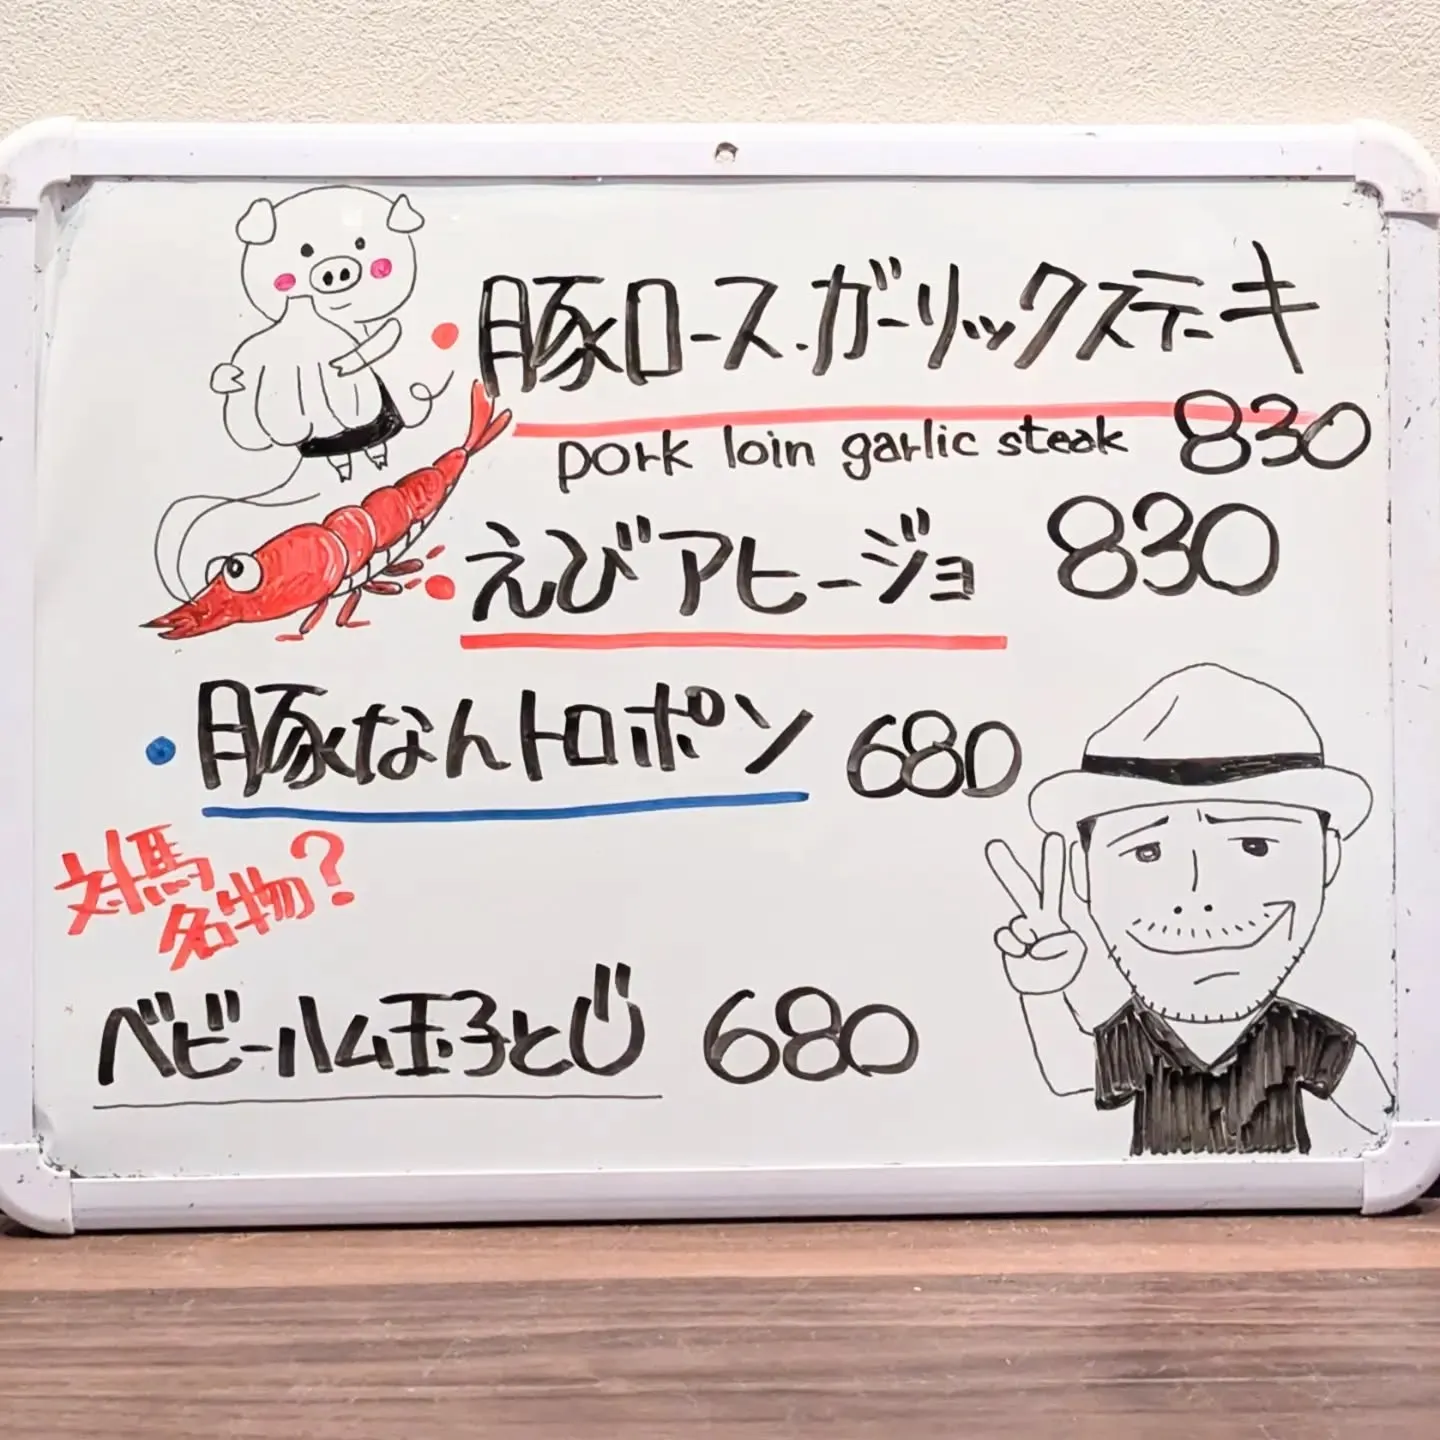 豚ロース.ガーリックステーキ
pork loin garlic steak 830
えびアヒージョ 830
豚なんトロポン 680
対馬
名物?
ベビーハム玉子とじ 680